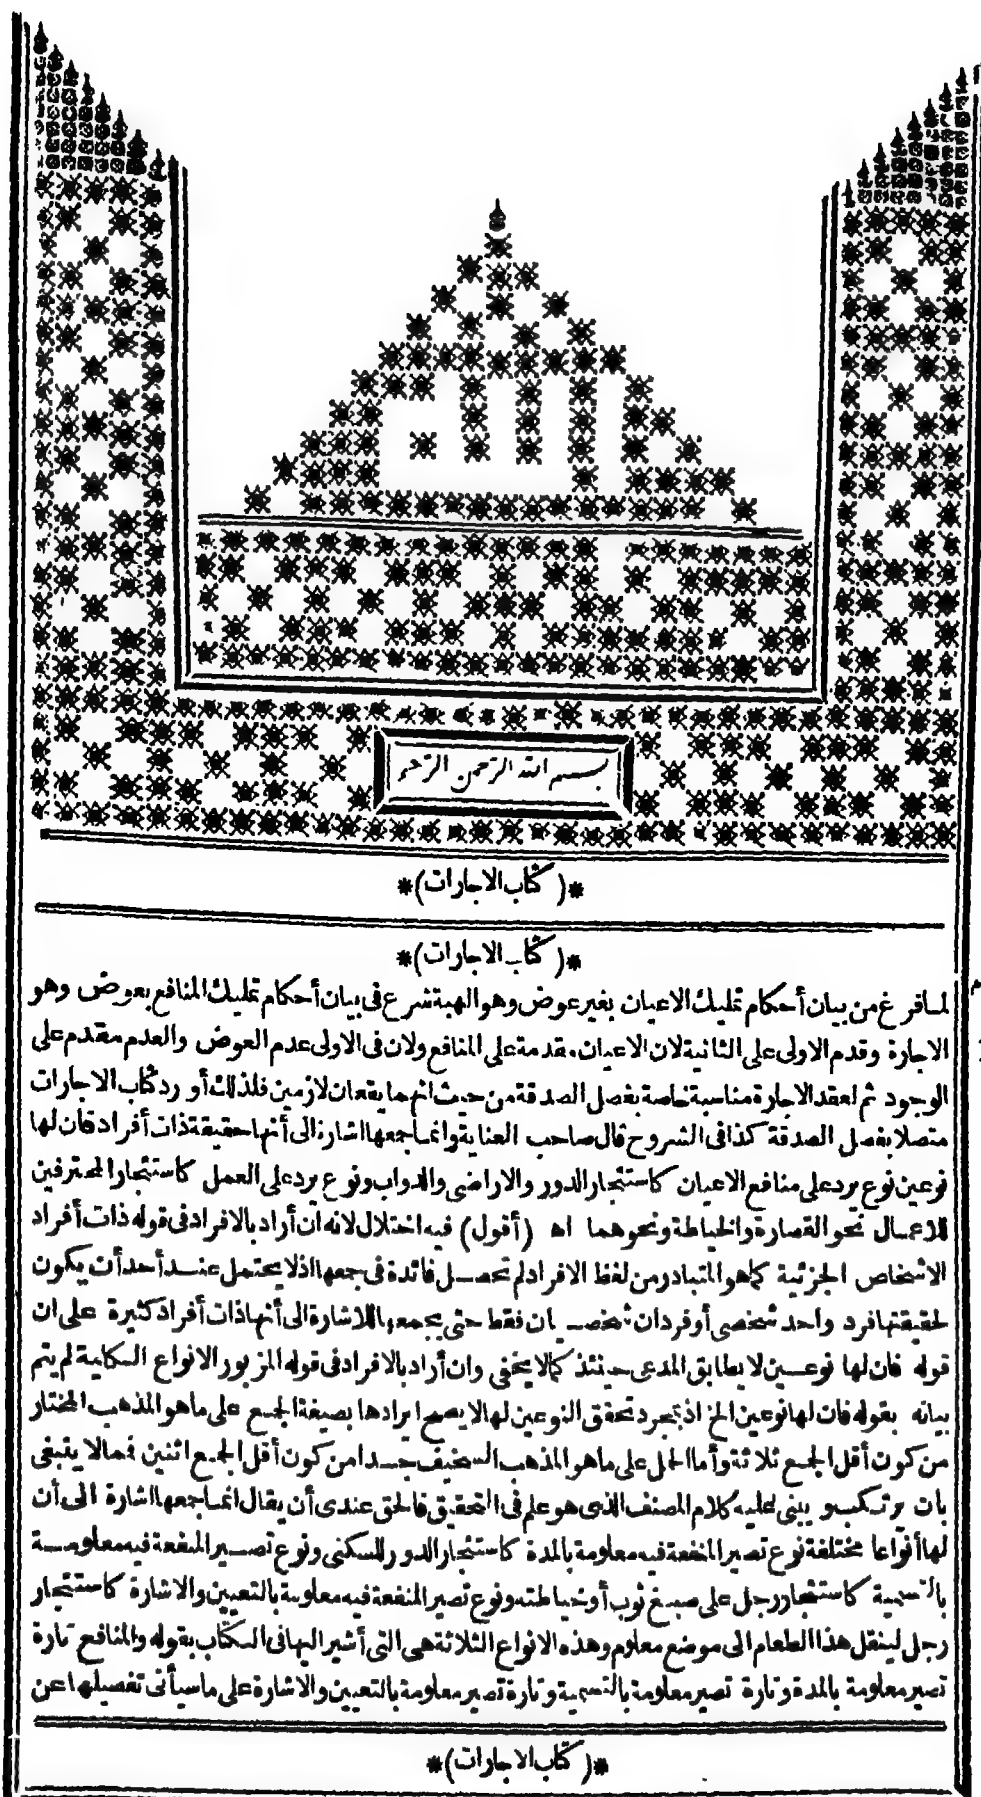 بسم الله الرحمن الرحيم
*( كتاب الاجارات )*
*( كتاب الاجارات )*
لما فرغ من بيان أحكام تمليك الاعيان بغير عوض وهو الهبة شرع في بيان أحكام تمليك المنافع بعوض وهو
الاجارة وقدم الاولى على الثانية لان الاعيان مقدمة على المنافع ولان في الاولى عدم العوض والعدم مقدم على
الوجود ثم لعقد الاجارة مناسبة خاصة بفصل الصدقة من حيث انهما يقعان لازمين فلذلك أورد كتاب الاجارات
متصلا بفصل الصدقة كذا في الشروح قال صاحب العناية وانما جمعها اشارة الى أنها حقيقة ذات أفراد فان لها
نوعين نوع يرد على منافع الاعيان كاستئجار الدور والاراضي والدواب ونوع يرد على العمل كاستئجار المحترفين
للاعمال نحو القصارة والخياطة ونحوهما اه (أقول) فيه اختلال لانه ان أراد بالافراد في قوله ذات أفراد
الاشخاص الجزئية كما هو المتبادر من لفظ الافراد لم تحصل فائدة في جمعها اذ لا يحتمل عند أحد أن يكون
لحقيقتها فرد واحد شخصي أو فردان شخصيان فقط حتى يجمعها للاشارة الى أنها ذات أفراد كثيرة على ان
قوله فان لها نوعين لا يطابق المدعى حينئذ كما لا يخفى وان أراد بالافراد في قوله المزبور الانواع الكلية لم يتم
بيانه بقوله فان لها نوعين الخ اذ بمجرد تحقق النوعين لها لا يصح ايرادها بصيغة الجمع على ما هو المذهب المختار
من كون أقل الجمع ثلاثة وأما الحمل على ما هو المذهب السخيف جدا من كون أقل الجمع اثنين فمما لا ينبغي
بان يرتكب ويبنى عليه كلام المصنف الذي هو علم في التحقيق فالحق عندي أن يقال انما جمعها اشارة الى أن
لها أنواعا مختلفة نوع تصير المنفعة فيه معلومة بالمدة كاستئجار الدور للسكنى ونوع تصير المنفعة فيه معلومة
بالتسمية كاستئجار رجل على صبغ ثوب أو خياطته ونوع تصير المنفعة فيه معلومة بالتعيين والاشارة كاستئجار
رجل لينقل هذا الطعام الى موضع معلوم وهذه الانواع الثلاثة هي التي أشير اليها في الكتاب بقوله والمنافع تارة
تصير معلومة بالمدة وتارة تصير معلومة بالتسمية وتارة تصير معلومة بالتعيين والاشارة على ما سيأتي تفصيلها عن
*( كتاب الاجارات )*